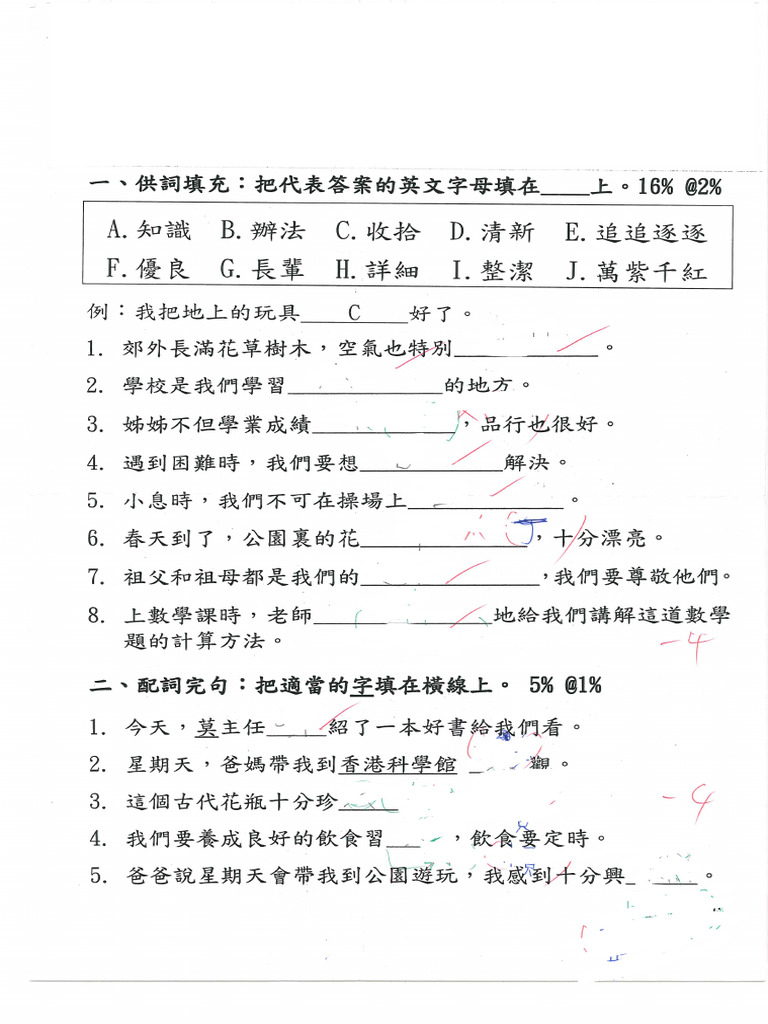 一、供詞填充：把代表答案的英文字母填在_____上。16% @2%
A.知識 B.辦法 C.收拾 D.清新 E.追追逐逐
F.優良 G.長輩 H.詳細 I.整潔 J.萬紫千紅
例：我把地上的玩具____C____好了。
1. 郊外長滿花草樹木，空氣也特別____________。
2. 學校是我們學習____________的地方。
3. 姊姊不但學業成績____________，品行也很好。
4. 遇到困難時，我們要想____________解決。
5. 小息時，我們不可在操場上____________。
6. 春天到了，公園裏的花____________，十分漂亮。
7. 祖父和祖母都是我們的____________，我們要尊敬他們。
8. 上數學課時，老師____________地給我們講解這道數學
題的計算方法。
-4
二、配詞完句：把適當的字填在橫線上。 5% @1%
1. 今天，莫主任_____紹了一本好書給我們看。
2. 星期天，爸媽帶我到香港科學館_____觀。
3. 這個古代花瓶十分珍_____
-4
4. 我們要養成良好的飲食習_____，飲食要定時。
5. 爸爸說星期天會帶我到公園遊玩，我感到十分興_____。